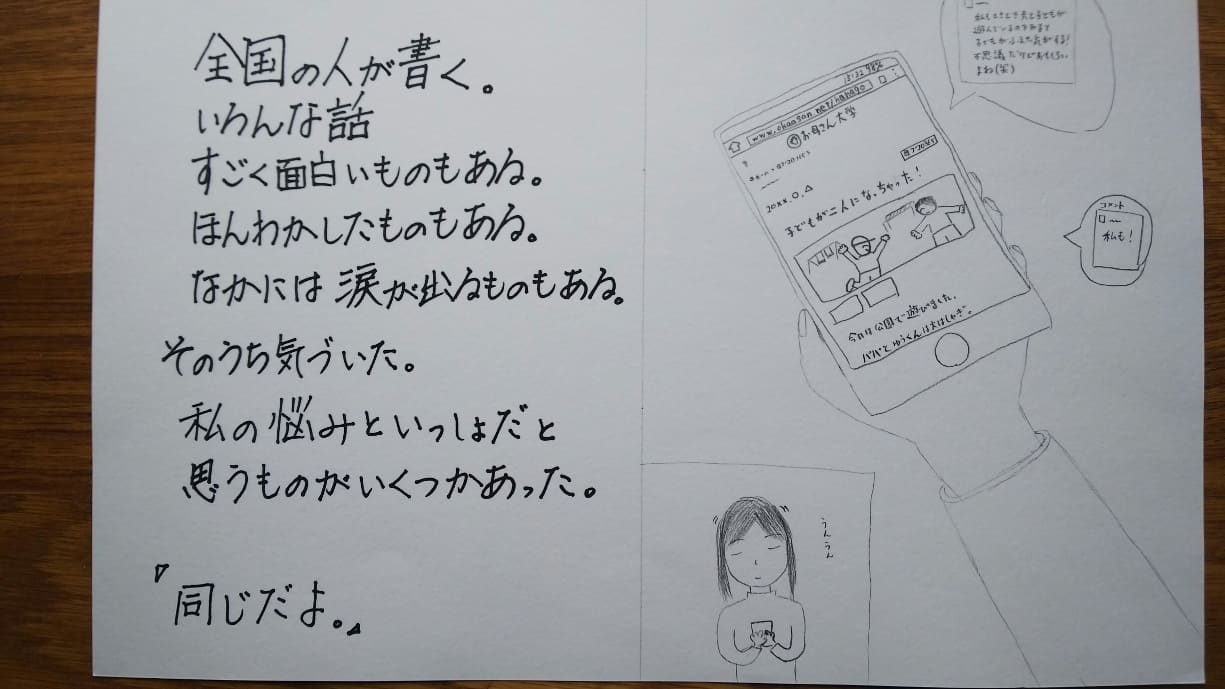 全国の人が書く。
いろんな話
すごく面白いものもある。
ほんわかしたものもある。
なかには涙が出るものもある。
そのうち気づいた。
私の悩みといっしょだと
思うものがいくつかあった。
『同じだよ。』
不思議だけどおもしろい
よね(笑)
www.okaasan.net/hahago
お母さん大学
20××.○.△
子どもが二人になっちゃった!
今日は公園で遊びました。
パパとゆうくんは大はしゃぎ。
コメント
私も!
うんうん